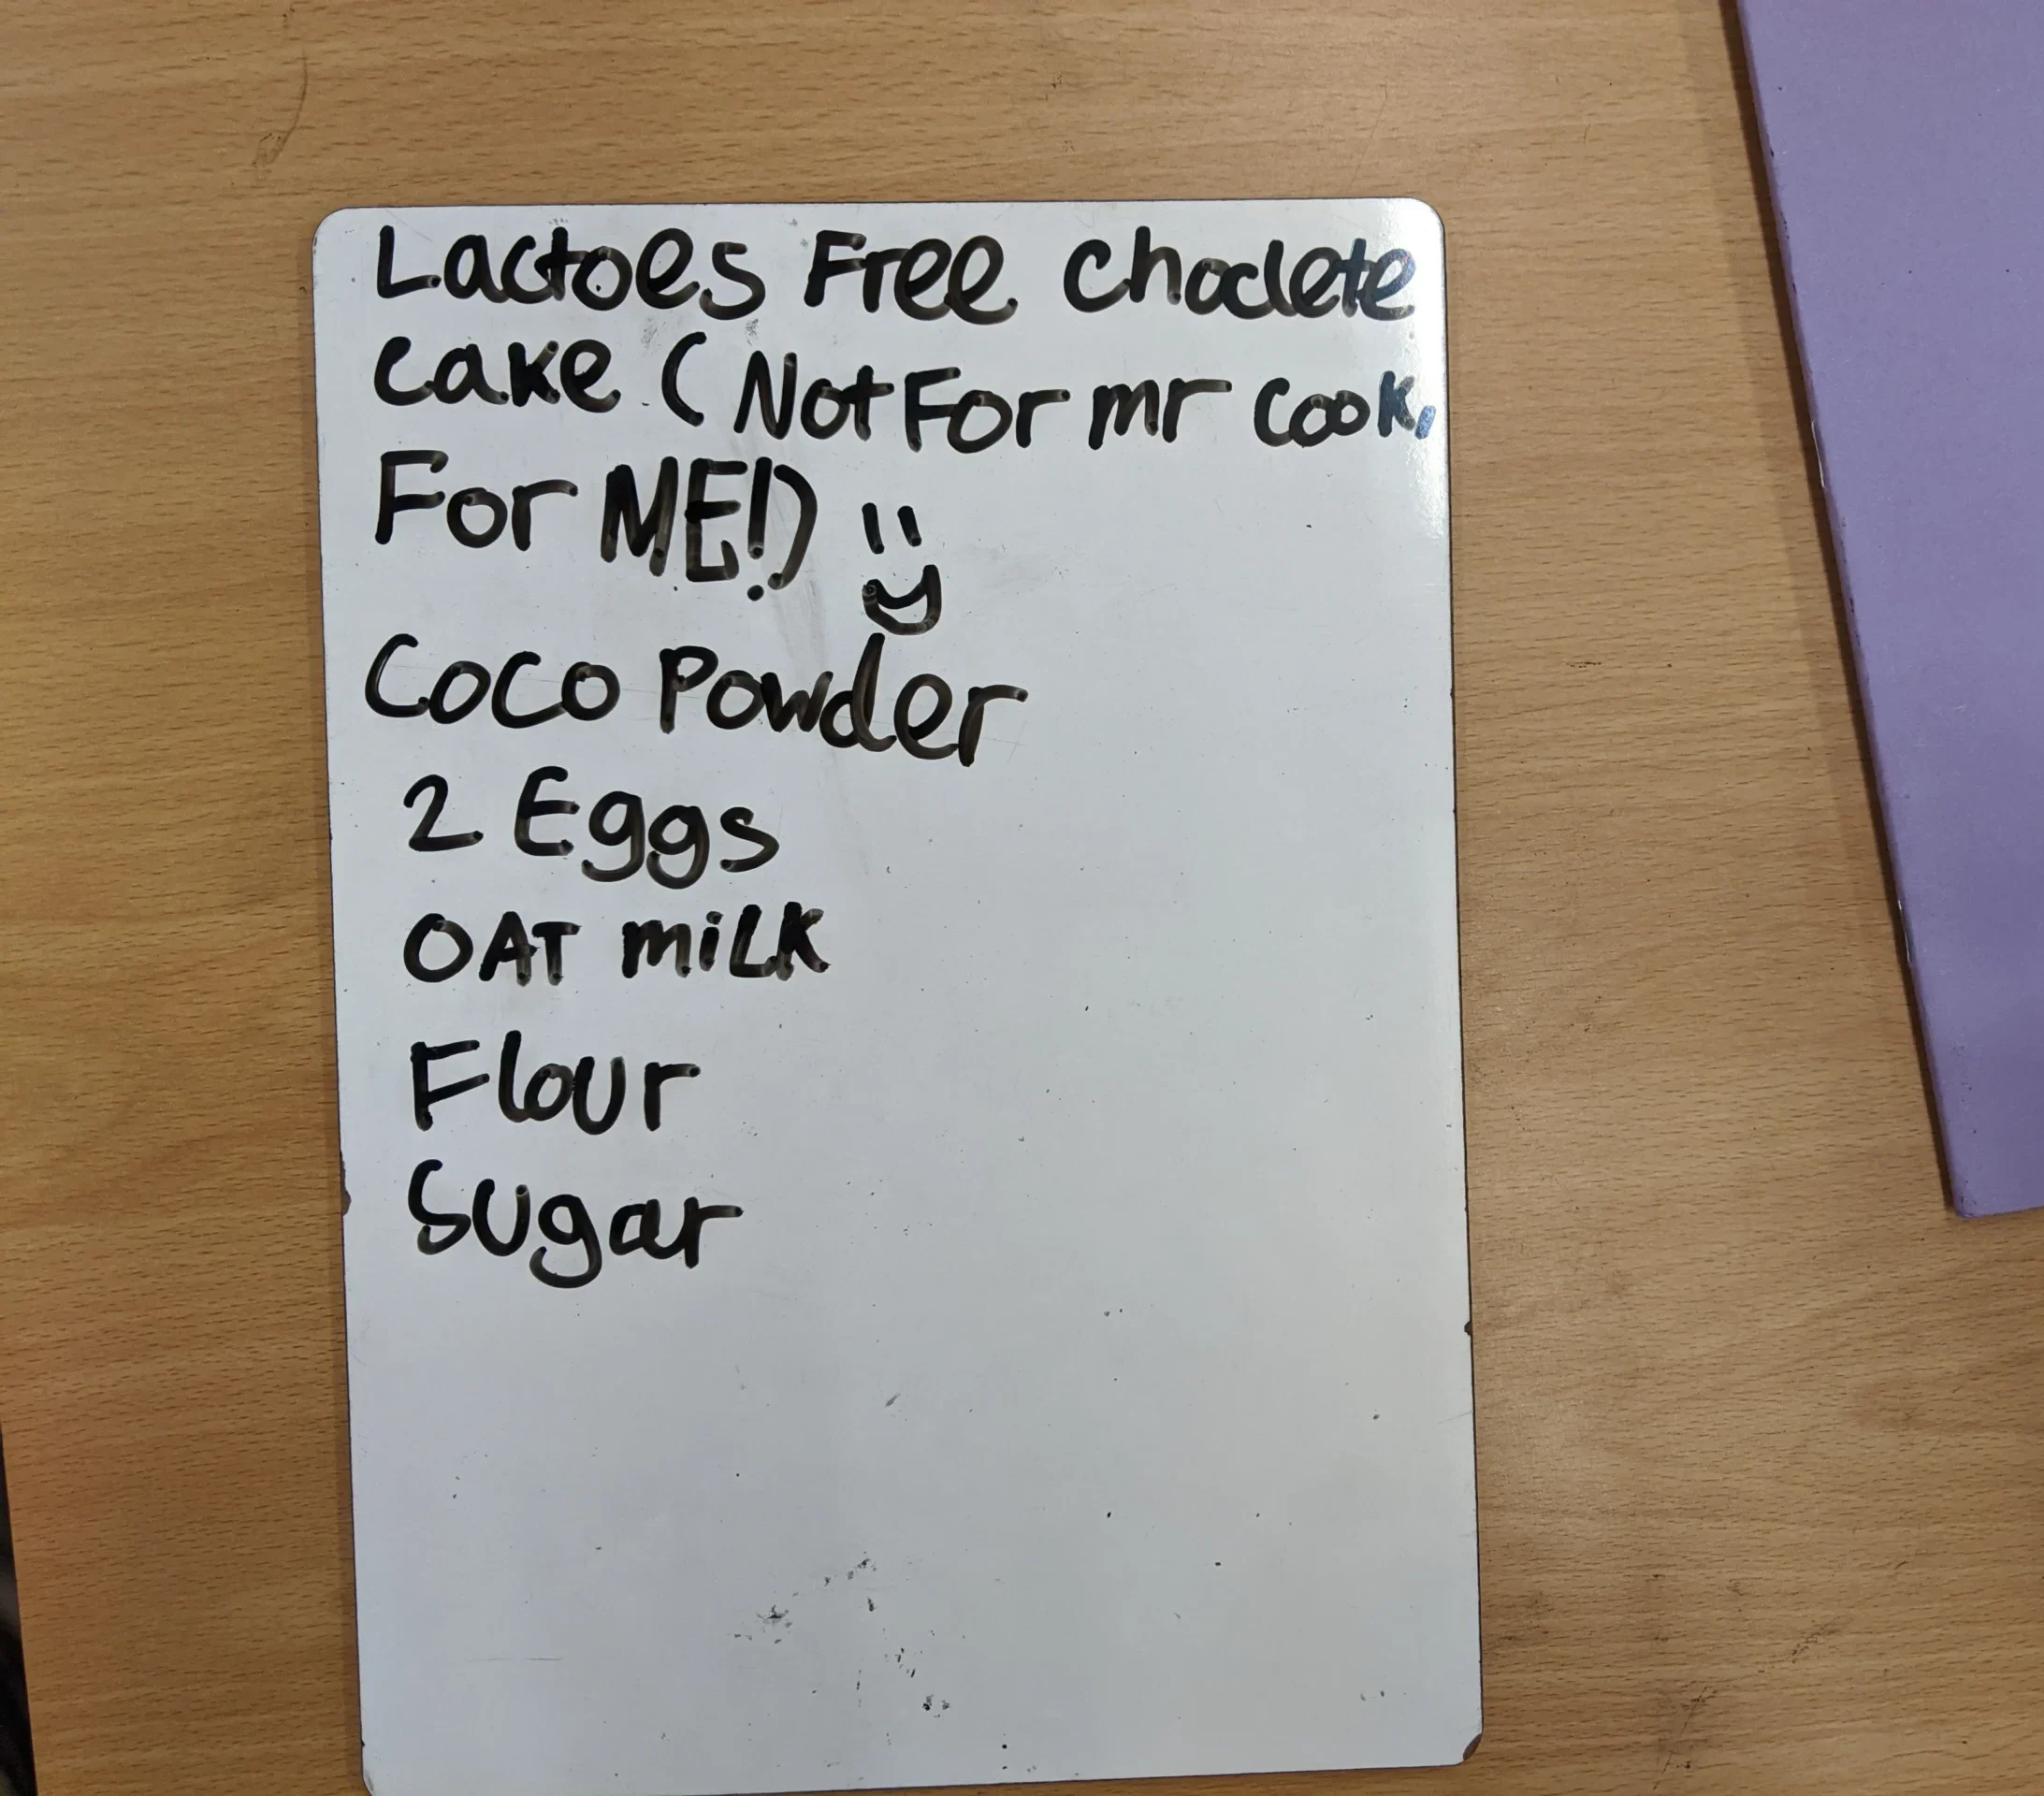 Lactoes Free choclete
cake (Not For mr cook,
For ME!)
Coco Powder
2 Eggs
OAT miLK
Flour
Sugar